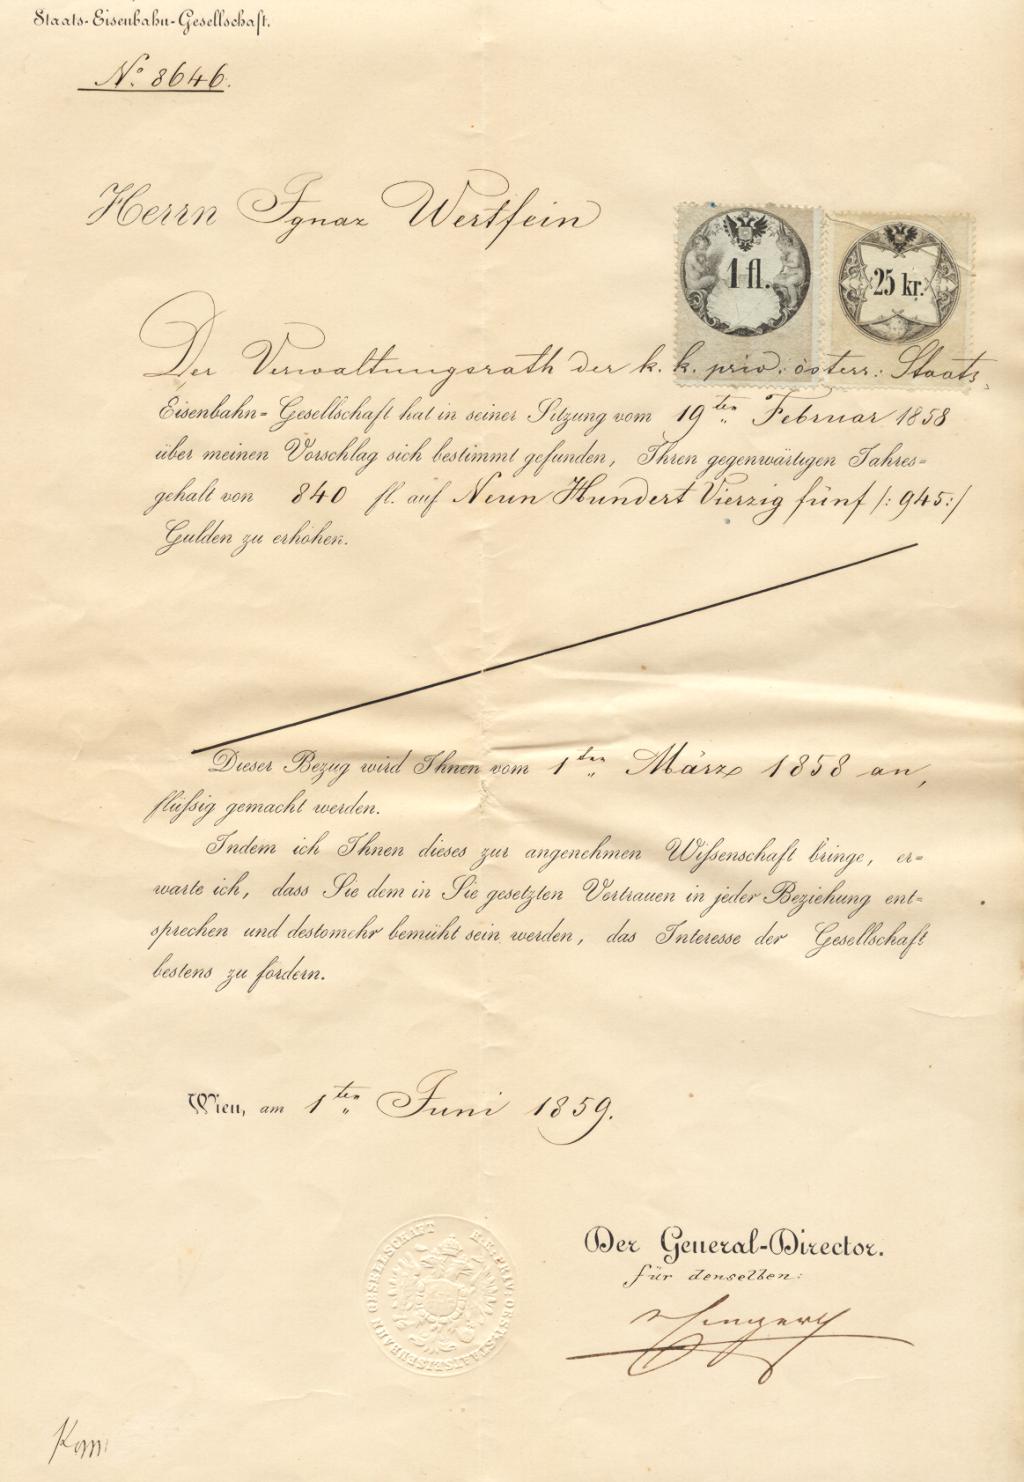 Staats-Eisenbahn-Gesellschaft.
No. 8646.
Herrn Ignaz Wertfein
1 fl.
25 kr.
Der Verwaltungsrath der k. k. priv: österr: Staats-
Eisenbahn-Gesellschaft hat in seiner Sitzung vom 19ten Februar 1858
über meinen Vorschlag sich bestimmt gefunden, Ihren gegenwärtigen Jahres-
gehalt von 840 fl. auf Neun Hundert Vierzig fünf /: 945:/
Gulden zu erhöhen.
Dieser Bezug wird Ihnen vom 1ten März 1858 an,
flüßig gemacht werden.
Indem ich Ihnen dieses zur angenehmen Wißenschaft bringe, er-
warte ich, dass Sie dem in Sie gesetzten Vertrauen in jeder Beziehung ent-
sprechen und destomehr bemüht sein werden, das Interesse der Gesellschaft
bestens zu fördern.
Wien, am 1ten Juni 1859.
K. K. PRIV. OEST. STAATSEISENBAHN GESELLSCHAFT
Der General-Director.
für denselben: